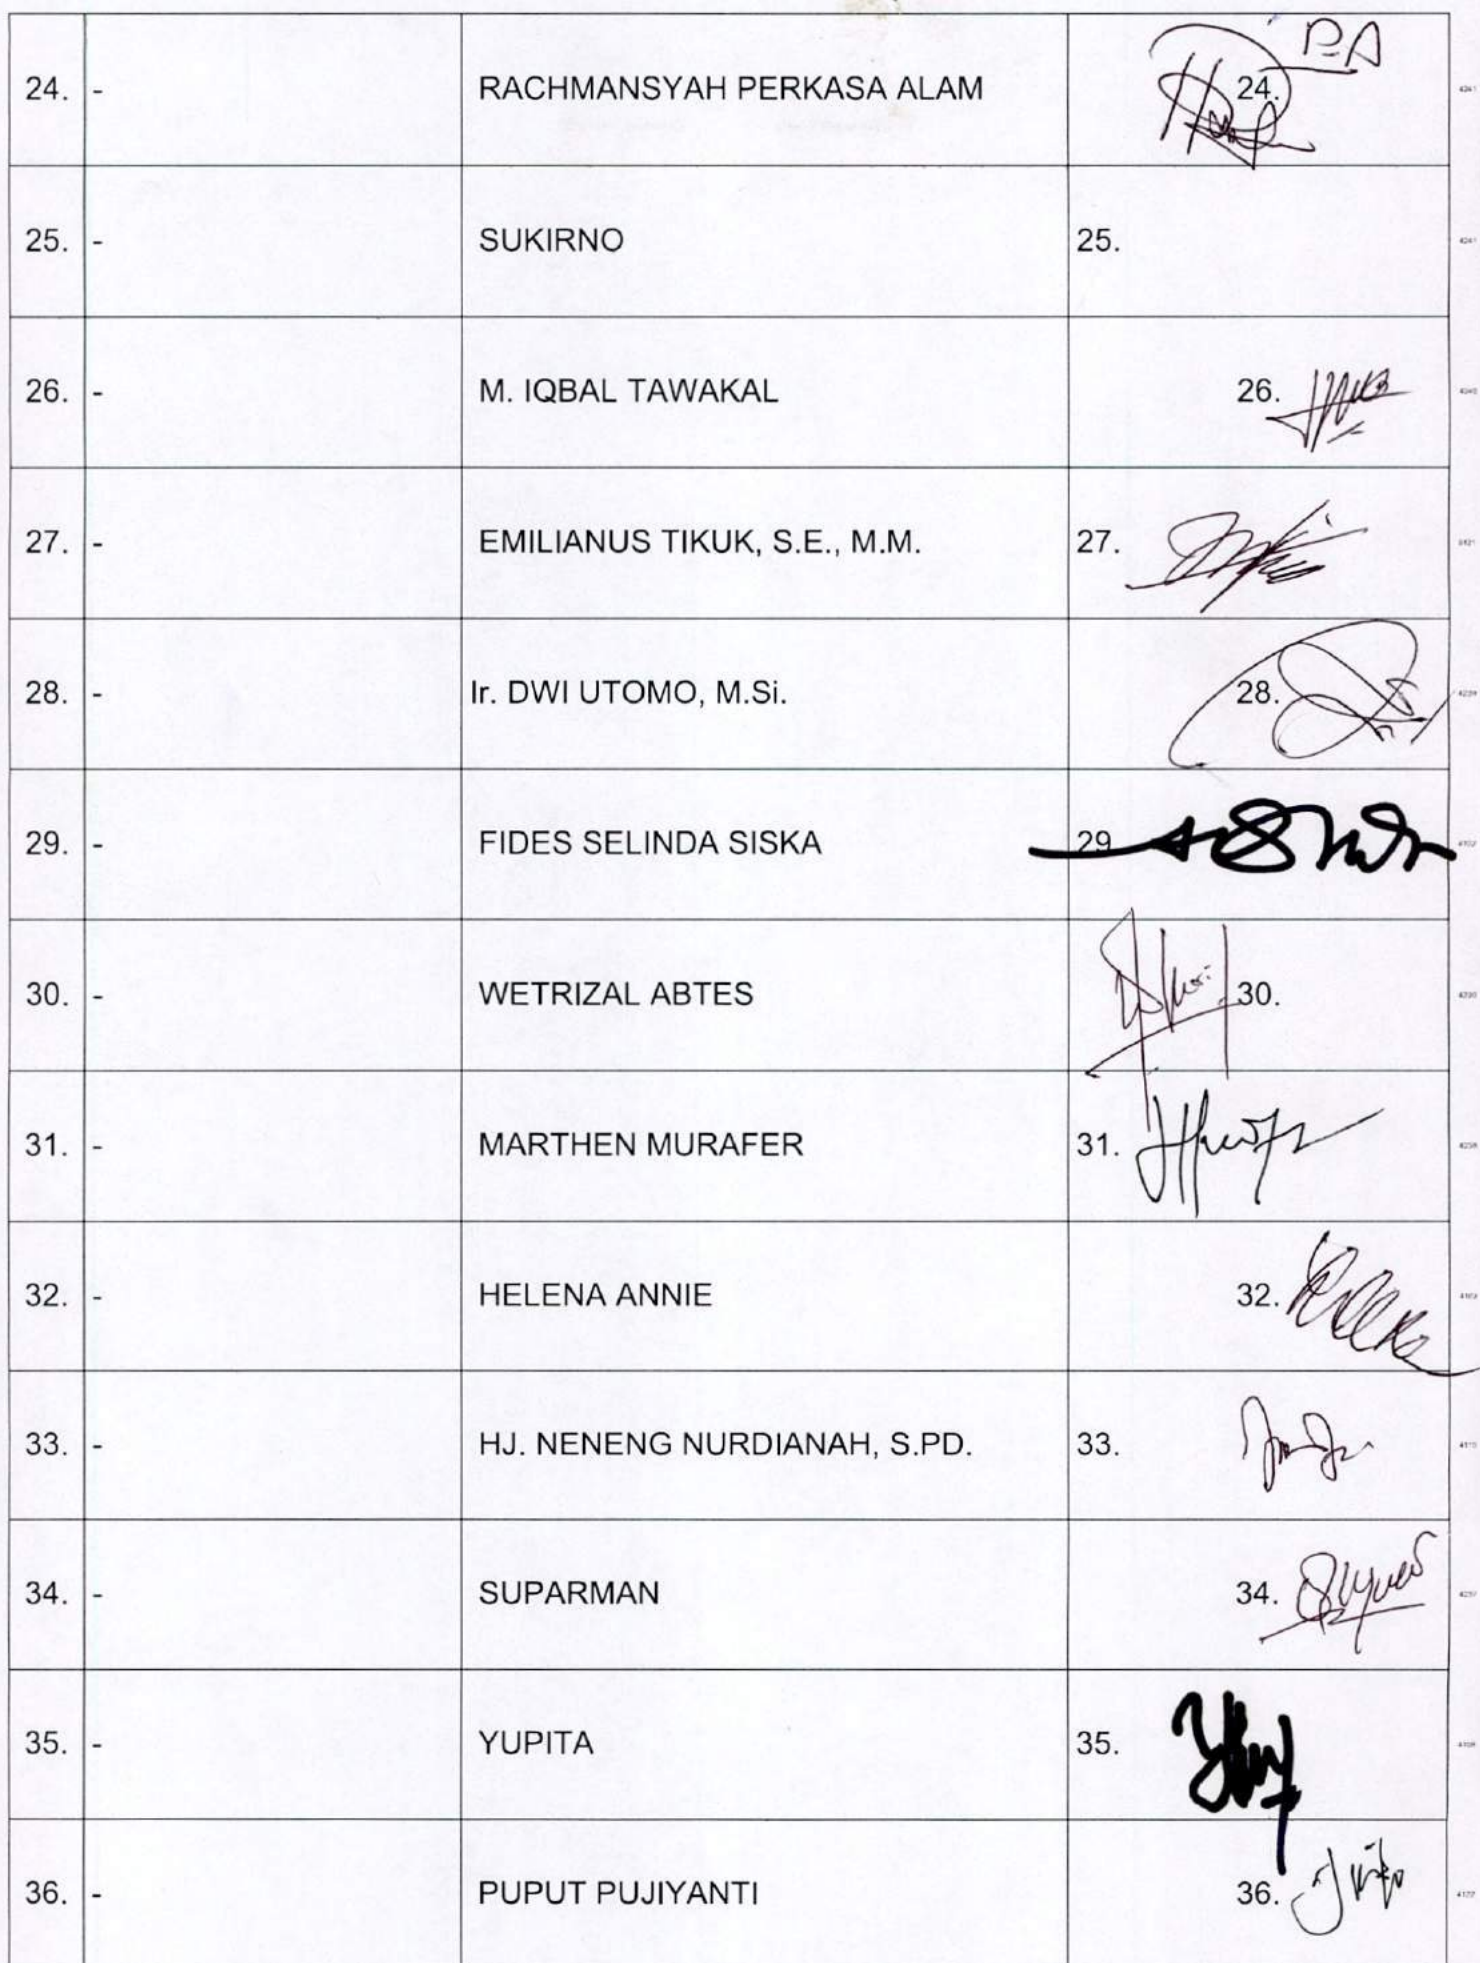 24. - RACHMANSYAH PERKASA ALAM 24. P.A
25. - SUKIRNO 25.
26. - M. IQBAL TAWAKAL 26.
27. - EMILIANUS TIKUK, S.E., M.M. 27.
28. - Ir. DWI UTOMO, M.Si. 28.
29. - FIDES SELINDA SISKA 29
30. - WETRIZAL ABTES 30.
31. - MARTHEN MURAFER 31.
32. - HELENA ANNIE 32.
33. - HJ. NENENG NURDIANAH, S.PD. 33.
34. - SUPARMAN 34.
35. - YUPITA 35.
36. - PUPUT PUJIYANTI 36.